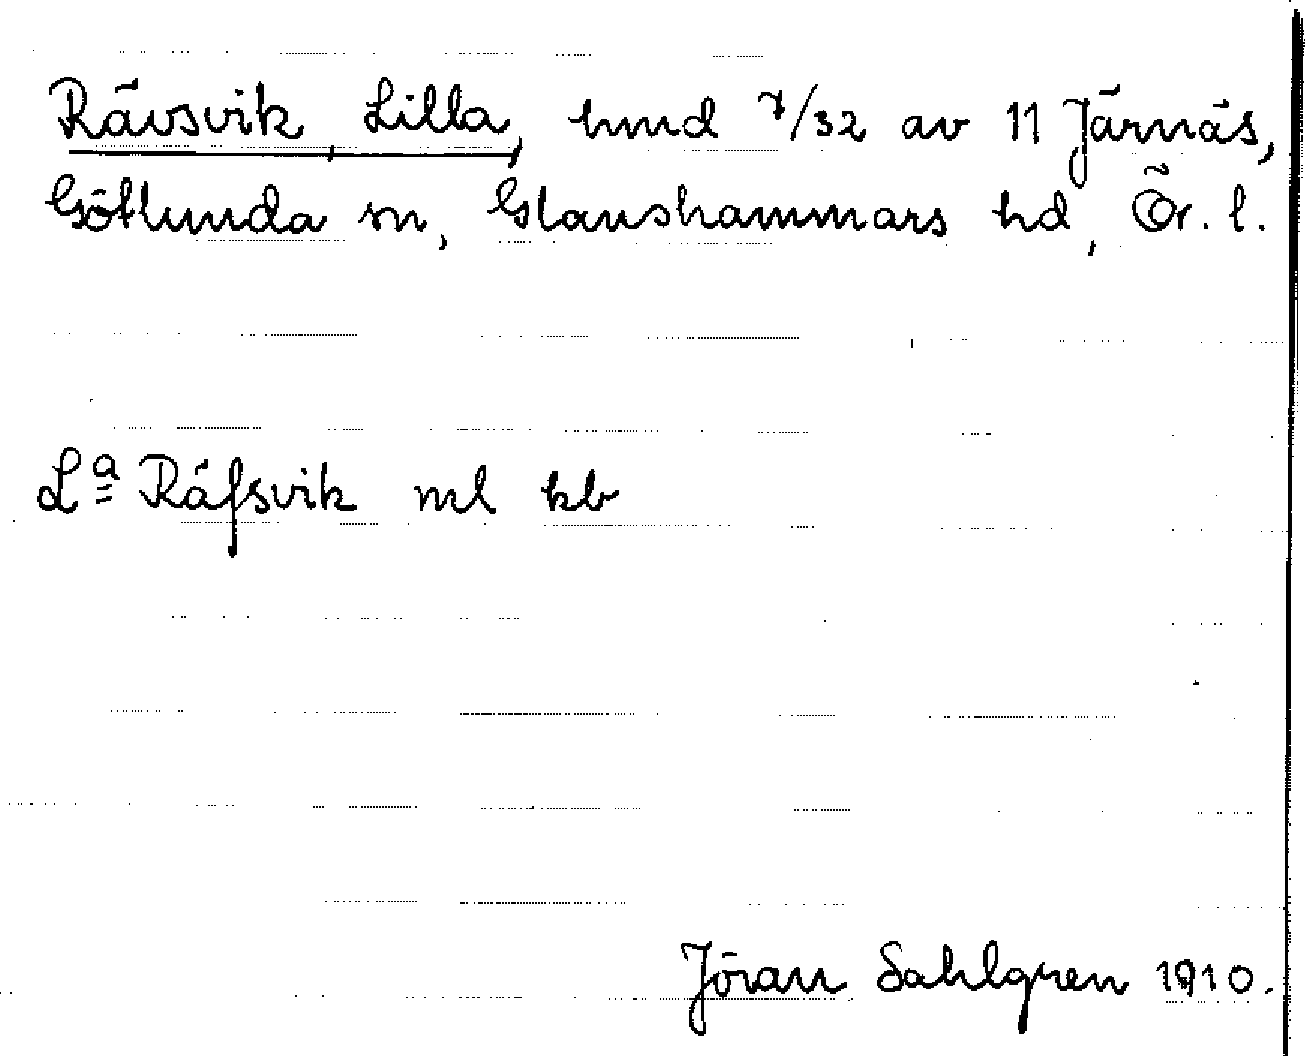 Rävsvik, Lilla, hmd 7/32 av 11 Järnäs,
Götlunda sn, Glanshammars hd, Ör. l.
La Räfsvik ml kb
Jöran Sahlgren 1910.